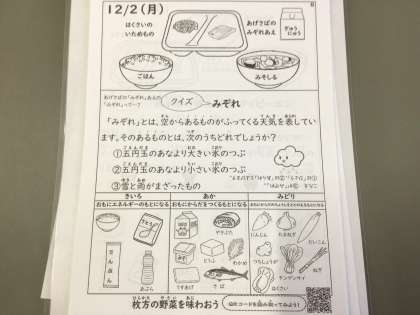 12/2(月)
8
はくさいの
いためもの
あげさばの
みぞれあえ
ぎゅう
にゅう
ごはん
みそしる
クイズ
みぞれ
「みぞれ」とは、空からあるものがふってくる天気を表してい
ます。そのあるものとは、次のうちどれでしょうか?
①五円玉のあなより大きい氷のつぶ
②五円玉のあなより小さい氷のつぶ
③雪と雨がまざったもの
きいろ
あか
みどり
おもにエネルギーのもとになる
おもにからだをつくるもとになる
でんぷん
あぶら
ぎゅうにゅう
とうふ
わかめ
さば
にんじん
たまねぎ
だいこん
つちしょうが
チンゲンサイ
ねぎ
はくさい
枚方の野菜を味わおう
QRコードを読み取ってみよう!